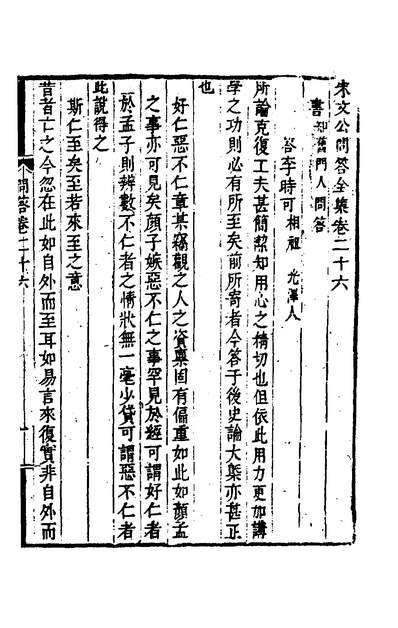 朱文公問答全集卷二十六
書知舊門人問答
答李時可相祖光澤人
所論克復工夫甚簡潔知用心之精切也但依此用力更加講
學之功則必有所至矣前所寄者今答于後史論大槩亦甚正
也
好仁惡不仁章某竊觀之人之資稟固有偏重如此如顏孟
之事亦可見矣顏子嫉惡不仁之事罕見於經可謂好仁者
於孟子則辨數不仁者之情狀無一毫少貸可謂惡不仁者
此說得之
斯仁至矣至若來至之意
昔者亡之今忽在此如自外而至耳如易言來復實非自外而
問答卷二十六